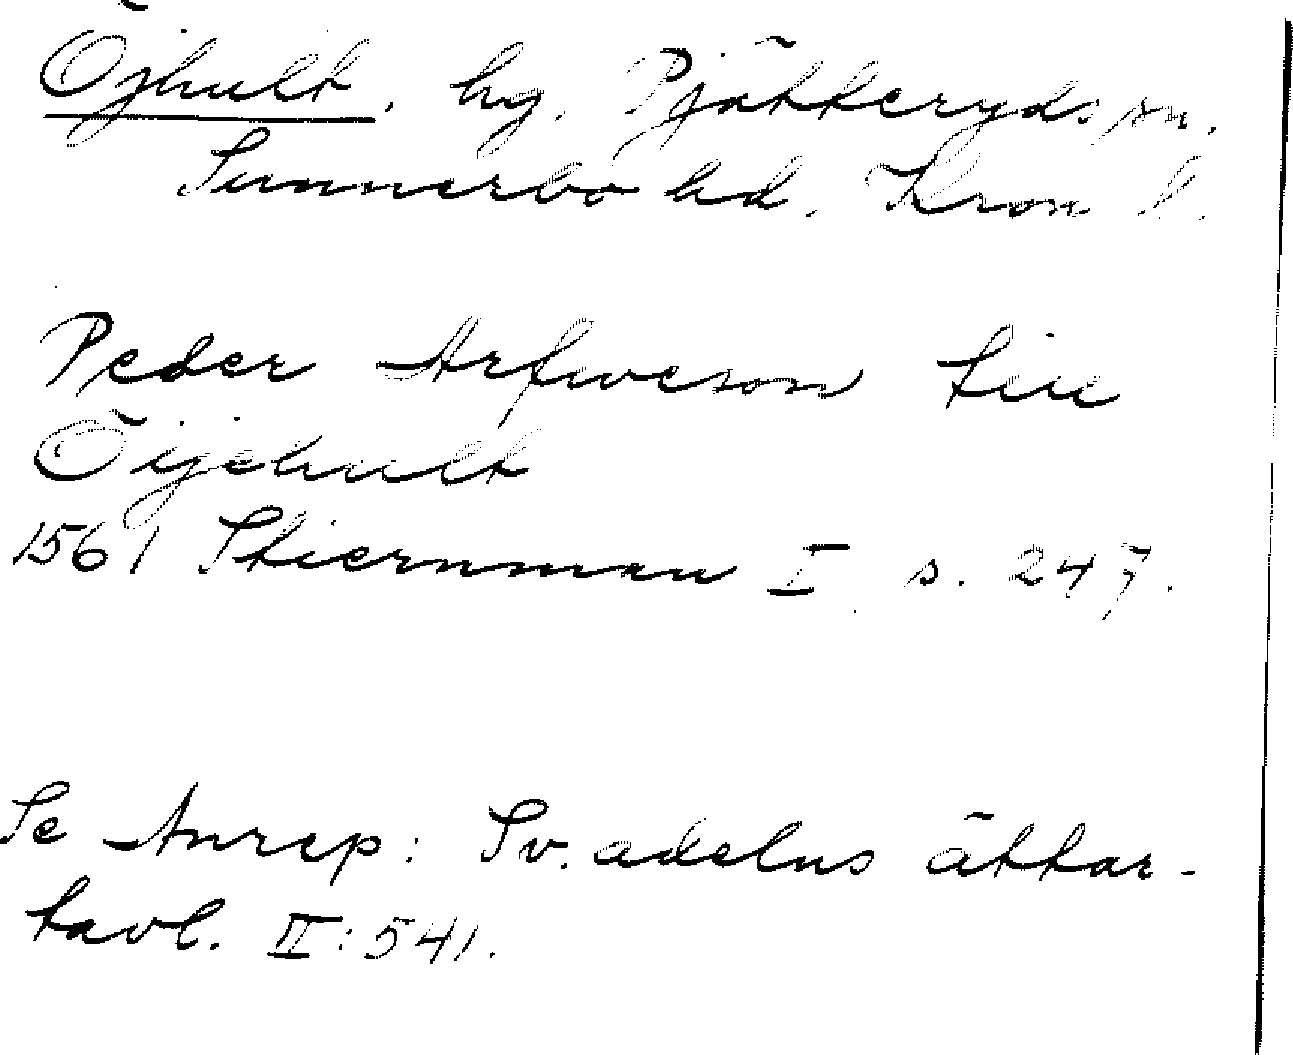 Öjhult, hg. Pjätteryds sn.
Sunnerbo hd. Kron l.
Peder Arfweson till
Öijehult
1561 Stiernman I s. 247.
Se Anrep: Sv. adelns ättar-
tavl. II:541.